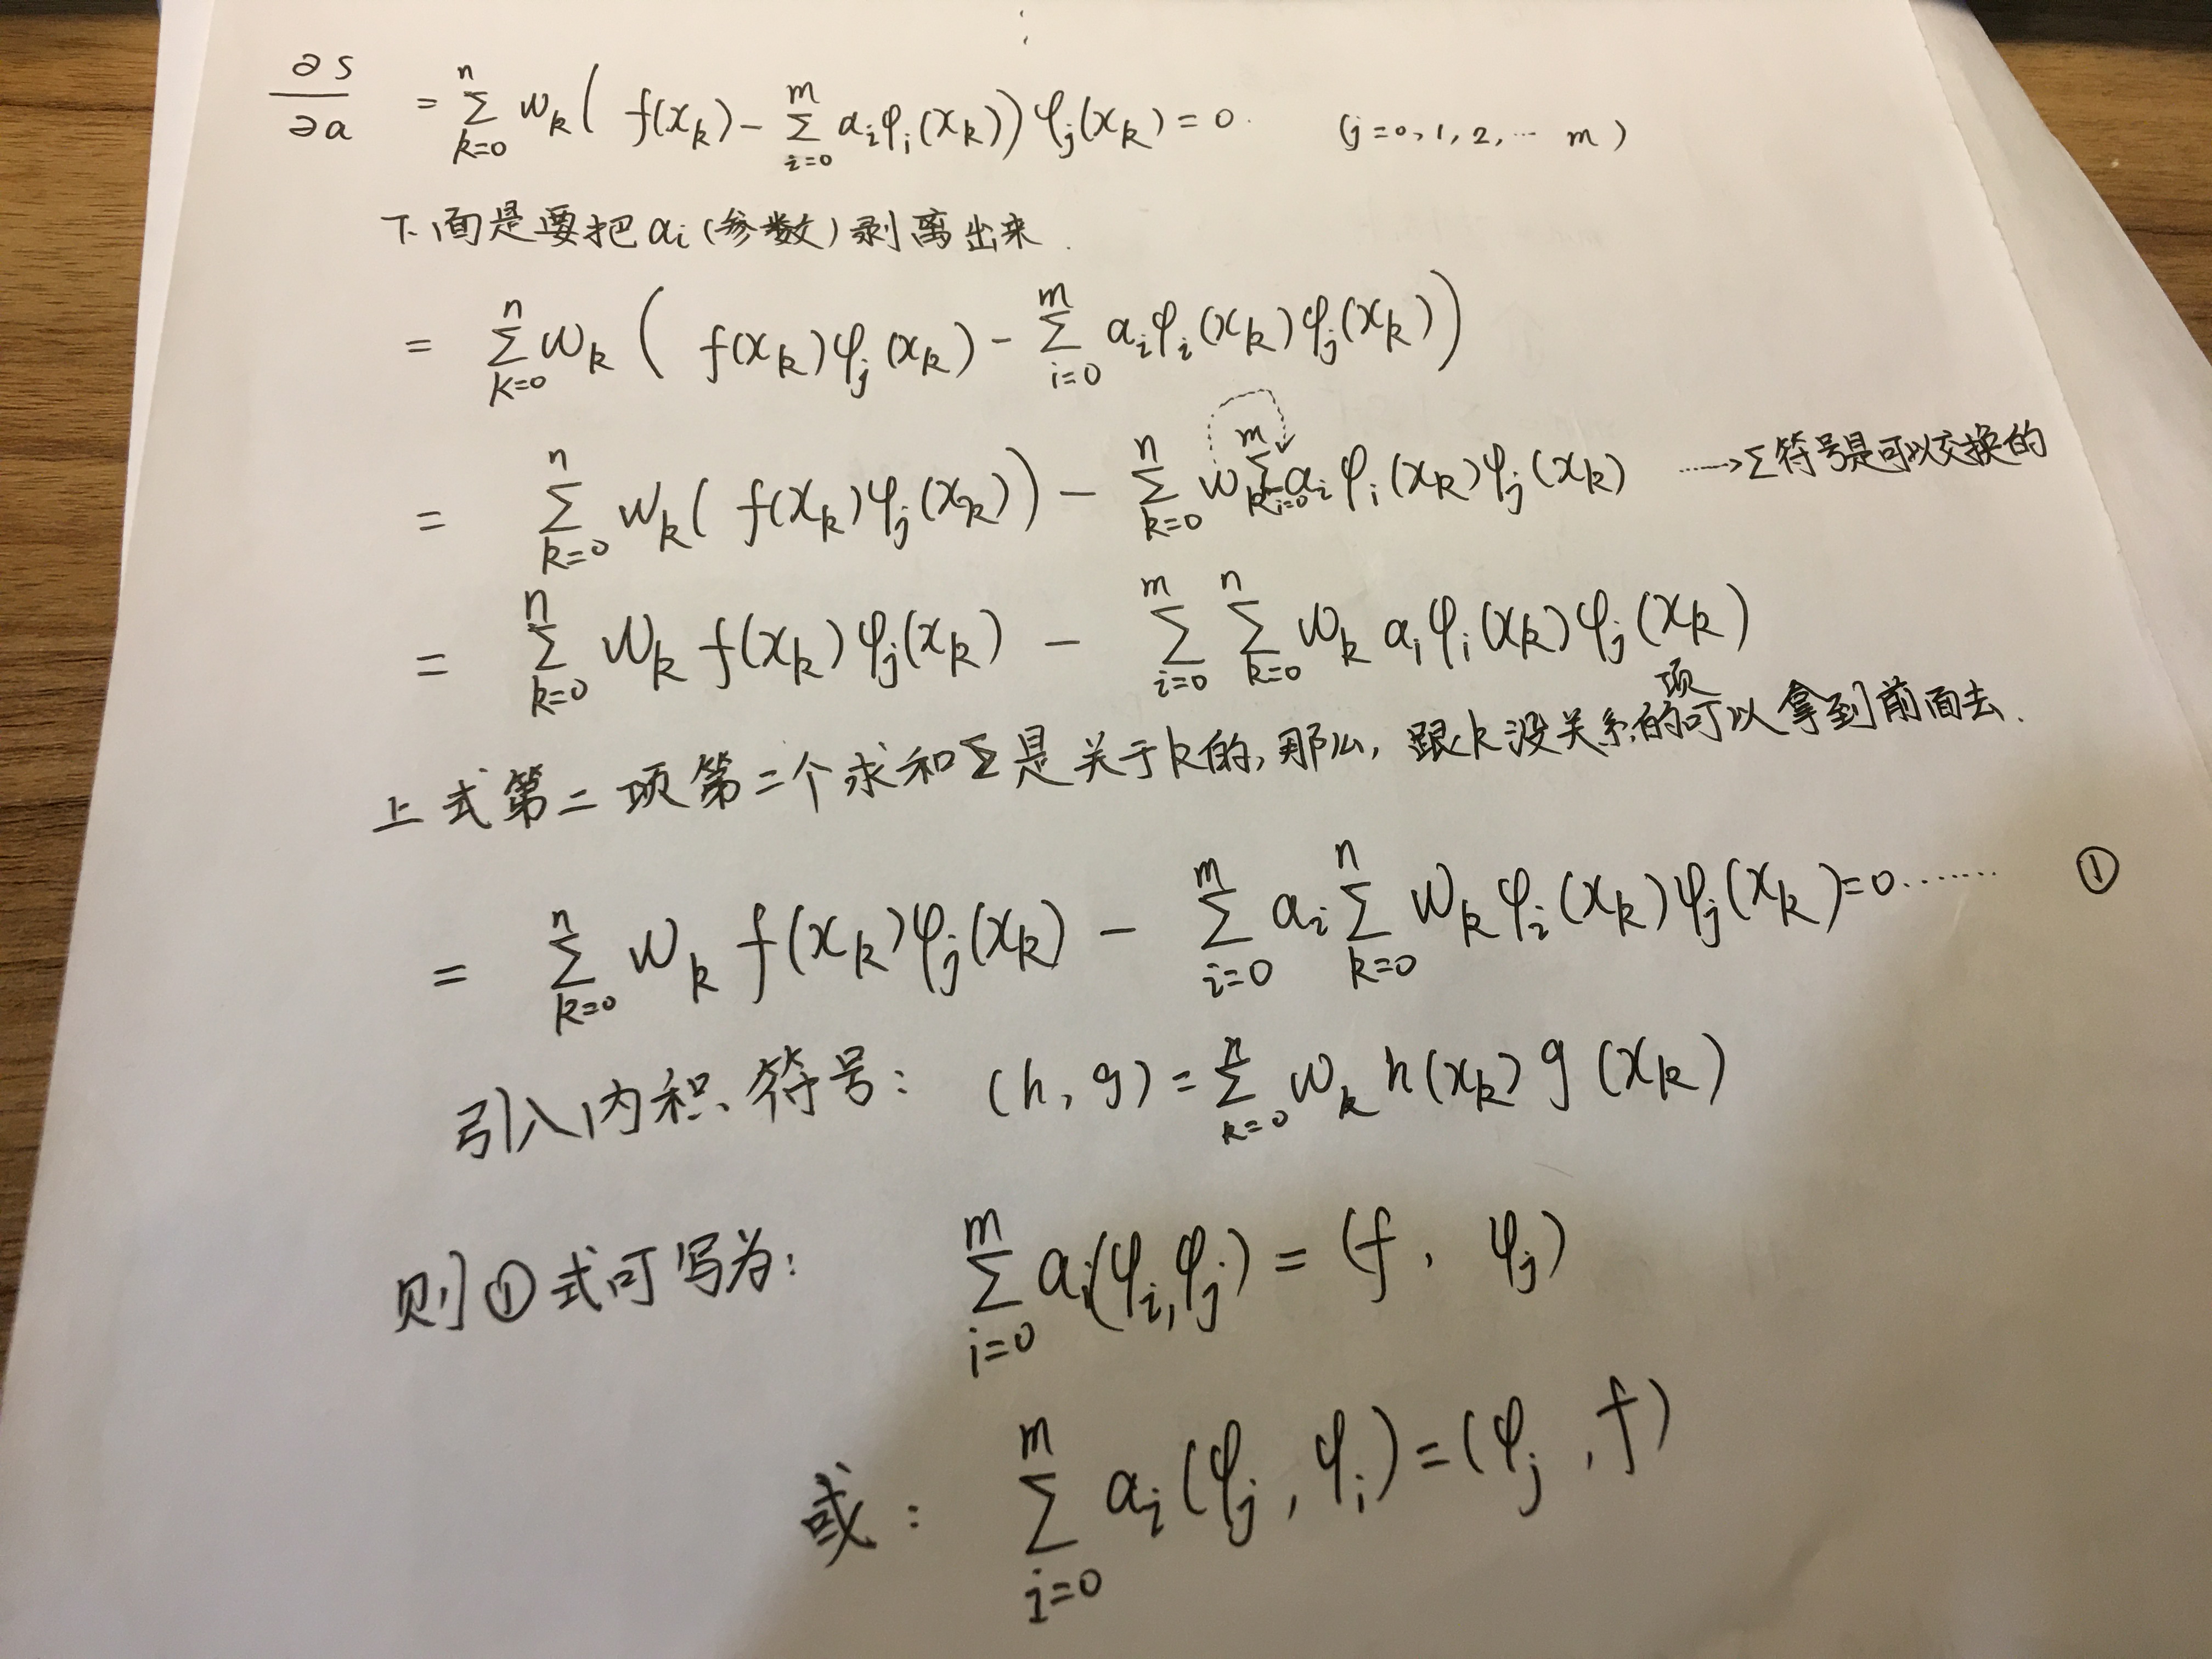 ∂S/∂a = Σ_{k=0}^{n} w_k ( f(x_k) - Σ_{i=0}^{m} a_i φ_i(x_k) ) φ_j(x_k) = 0. (j=0,1,2,… m)
下面是要把 a_i (参数) 剥离出来.
= Σ_{k=0}^{n} w_k ( f(x_k) φ_j(x_k) - Σ_{i=0}^{m} a_i φ_i(x_k) φ_j(x_k) )
= Σ_{k=0}^{n} w_k ( f(x_k) φ_j(x_k) ) - Σ_{k=0}^{n} w_k Σ_{i=0}^{m} a_i φ_i(x_k) φ_j(x_k) ……→ Σ符号是可以交换的
= Σ_{k=0}^{n} w_k f(x_k) φ_j(x_k) - Σ_{i=0}^{m} Σ_{k=0}^{n} w_k a_i φ_i(x_k) φ_j(x_k)
上式第二项第二个求和Σ是关于k的, 那么, 跟k没关系的项可以拿到前面去.
= Σ_{k=0}^{n} w_k f(x_k) φ_j(x_k) - Σ_{i=0}^{m} a_i Σ_{k=0}^{n} w_k φ_i(x_k) φ_j(x_k) = 0 …… ①
引入内积符号: (h, g) = Σ_{k=0}^{n} w_k h(x_k) g(x_k)
则①式可写为: Σ_{i=0}^{m} a_i (φ_i, φ_j) = (f, φ_j)
或: Σ_{i=0}^{m} a_i (φ_j, φ_i) = (φ_j, f)